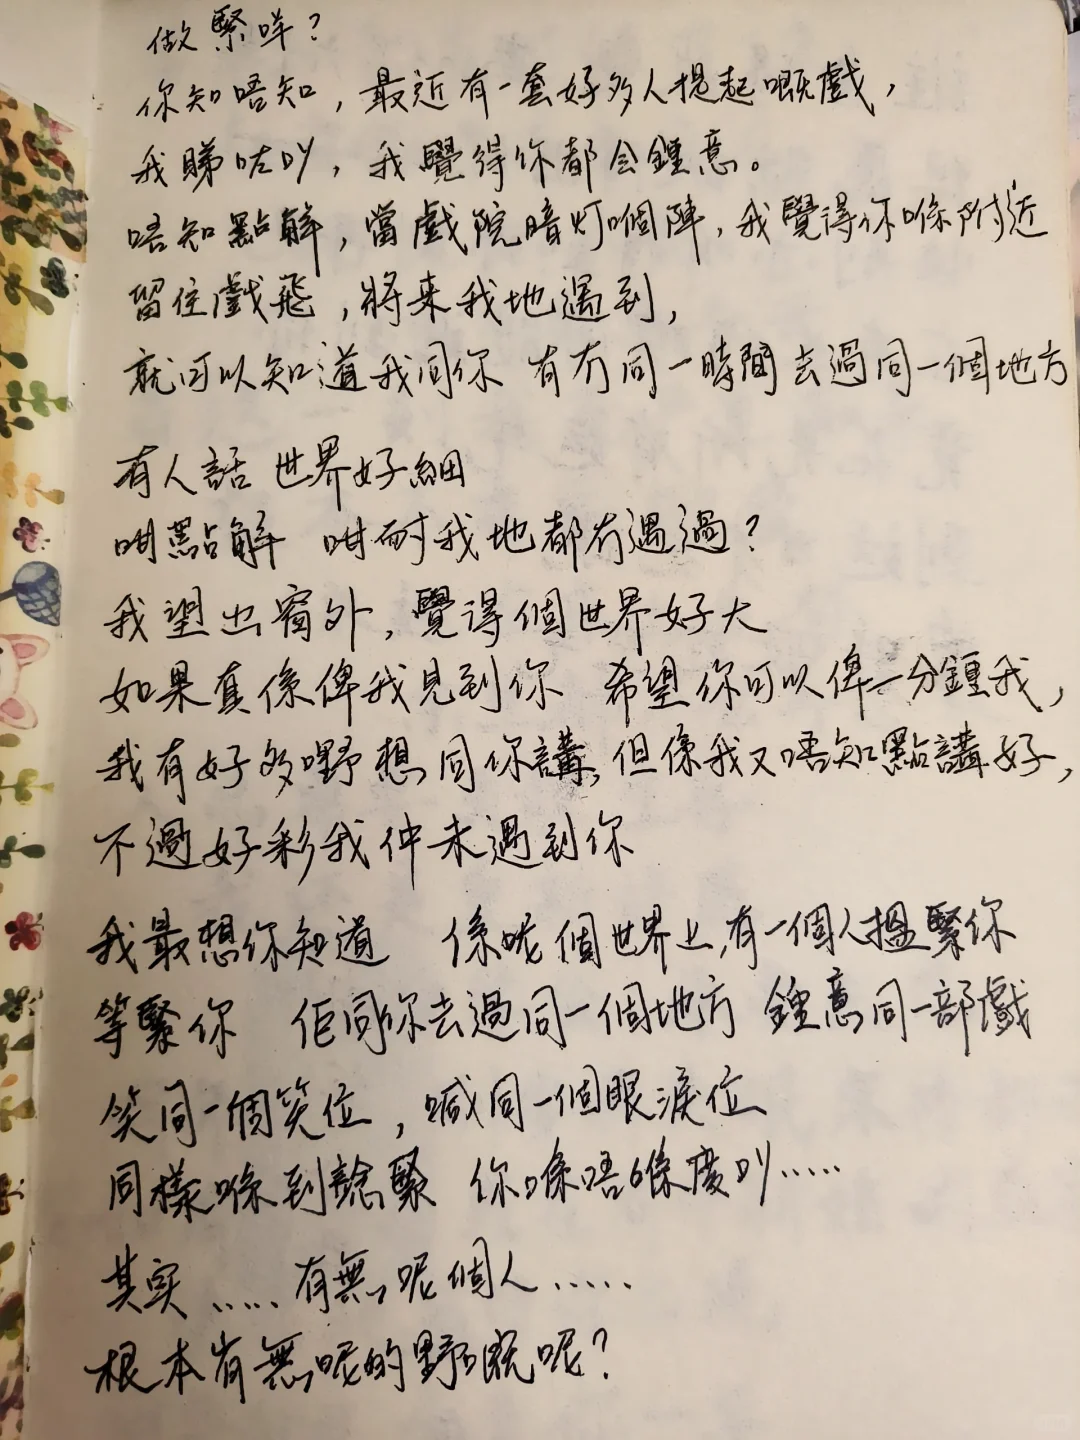 做緊咩？
你知唔知，最近有一套好多人提起嘅戲，
我睇咗叺，我覺得你都会鍾意。
唔知點解，當戲院暗灯嗰陣，我覺得你喺附近
留住戲飛，將来我地遇到，
就可以知道我同你 有冇同一時間去過同一個地方
有人話 世界好細
咁點解 咁耐我地都冇遇過？
我望出窗外，覺得個世界好大
如果真係俾我見到你 希望你可以俾一分鍾我，
我有好多嘢想同你講，但係我又唔知點講好，
不過好彩我仲未遇到你
我最想你知道 係呢個世界上，有一個人搵緊你
等緊你 佢同你去過同一個地方 鍾意同一部戲
笑同一個笑位，喊同一個眼淚位
同樣喺到諗緊 你喺唔喺度叺……
其实……有無呢個人……
根本有無呢的野嘅呢？